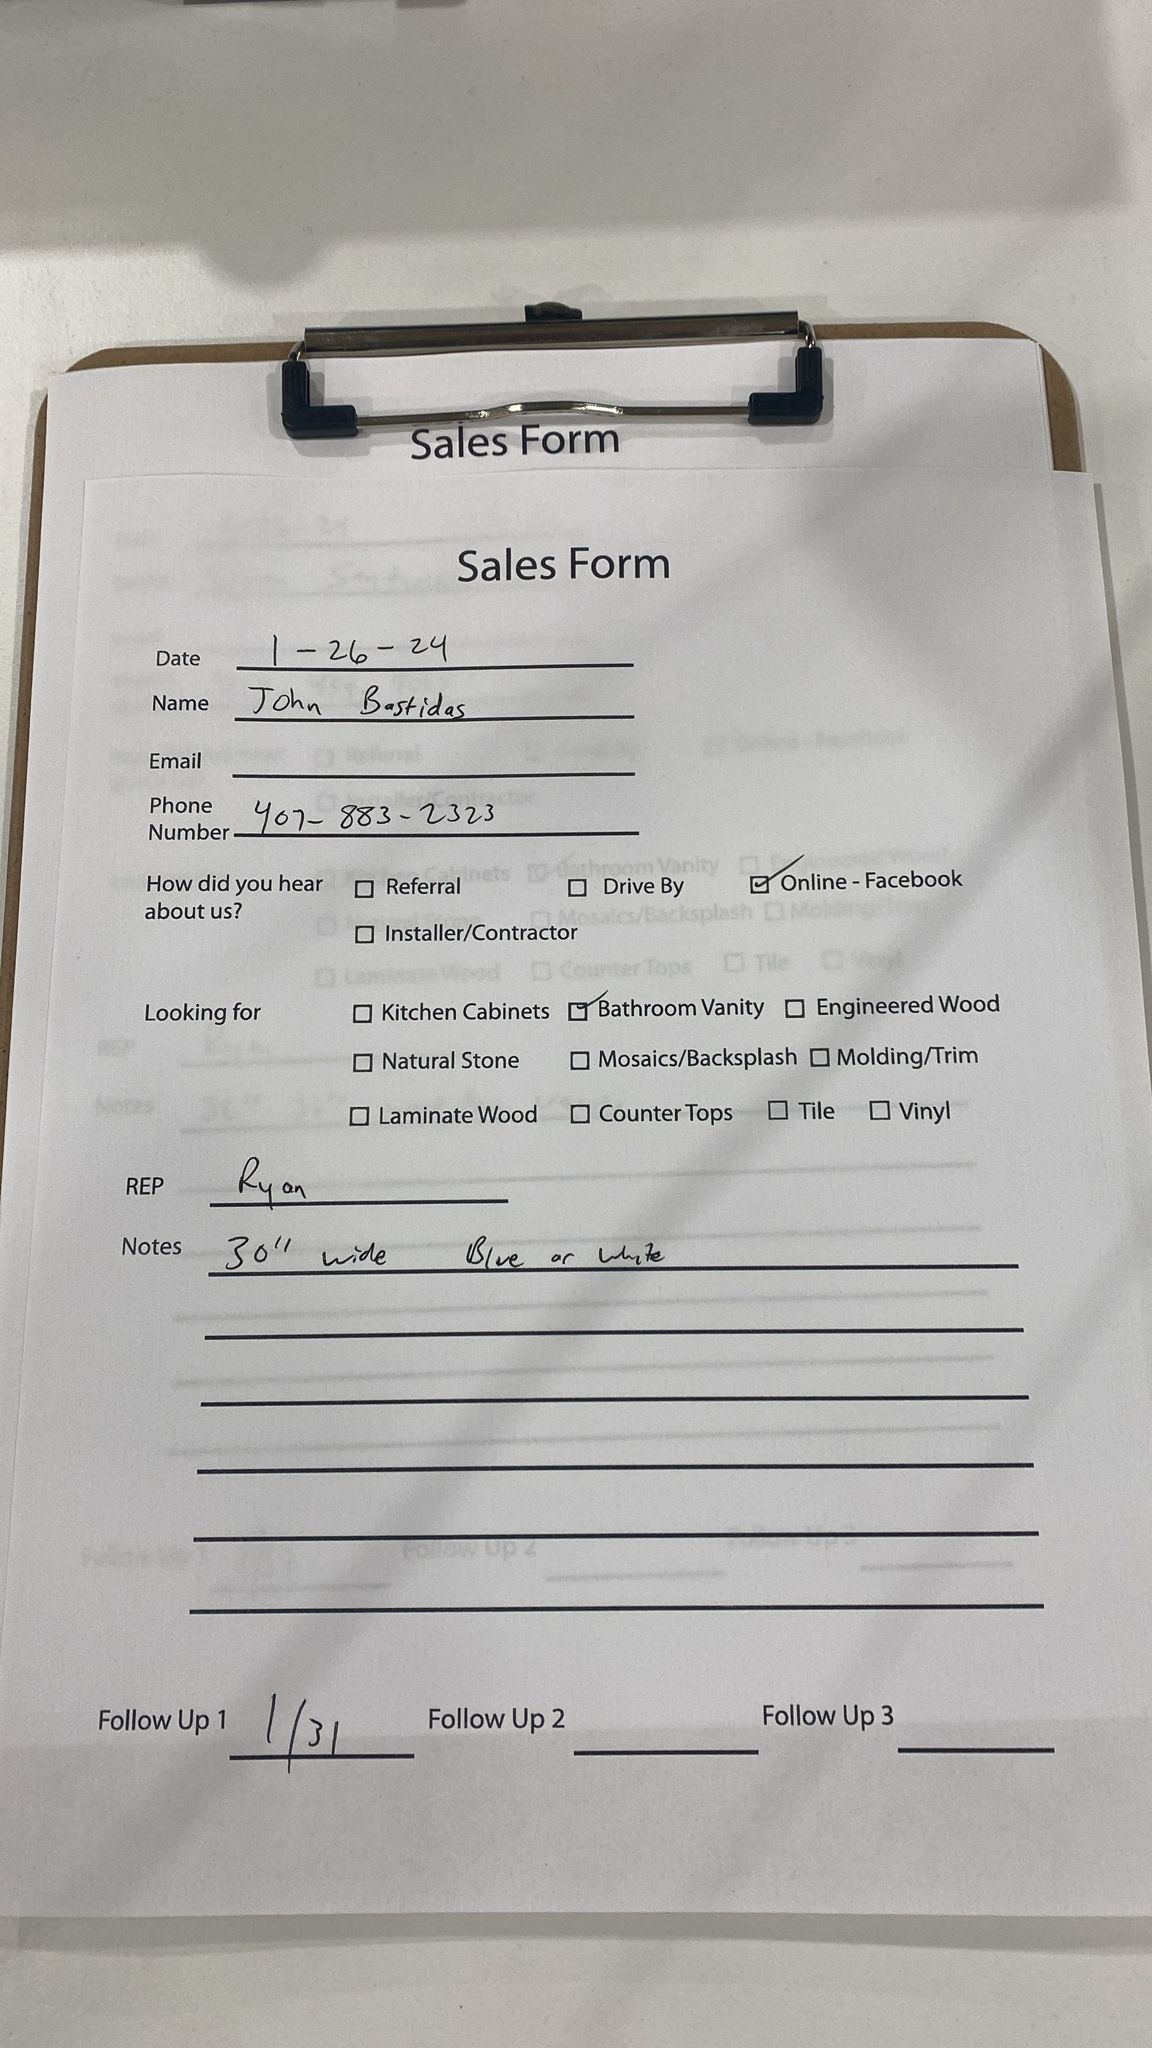 Sales Form
Sales Form
Date 1-26-24
Name John Bastidas
Email
Phone
Number 407-883-2323
How did you hear ☐ Referral ☐ Drive By ☑ Online - Facebook
about us?
☐ Installer/Contractor
Looking for ☐ Kitchen Cabinets ☑ Bathroom Vanity ☐ Engineered Wood
☐ Natural Stone ☐ Mosaics/Backsplash ☐ Molding/Trim
☐ Laminate Wood ☐ Counter Tops ☐ Tile ☐ Vinyl
REP Ryan
Notes 30" wide Blue or white
Follow Up 1 1/31 Follow Up 2 Follow Up 3